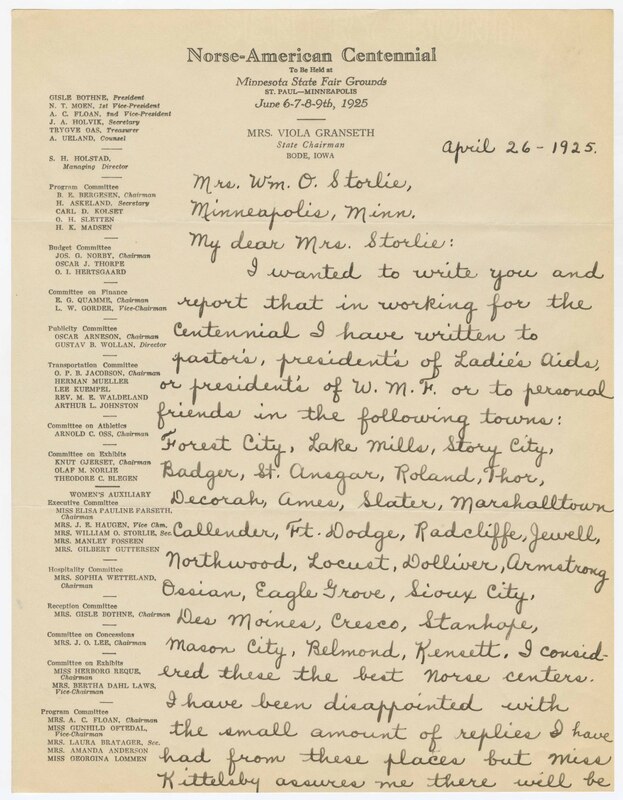 Norse-American Centennial
To Be Held at
Minnesota State Fair Grounds
ST. PAUL—MINNEAPOLIS
June 6-7-8-9th, 1925
MRS. VIOLA GRANSETH
State Chairman
BODE, IOWA
GISLE BOTHNE, President
N. T. MOEN, 1st Vice-President
A. C. FLOAN, 2nd Vice-President
J. A. HOLVIK, Secretary
TRYGVE OAS, Treasurer
A. UELAND, Counsel
S. H. HOLSTAD,
Managing Director
Program Committee
B. E. BERGESEN, Chairman
H. ASKELAND, Secretary
CARL D. KOLSET
O. H. SLETTEN
H. K. MADSEN
Budget Committee
JOS. G. NORBY, Chairman
OSCAR J. THORPE
O. I. HERTSGAARD
Committee on Finance
E. G. QUAMME, Chairman
L. W. GORDER, Vice-Chairman
Publicity Committee
OSCAR ARNESON, Chairman
GUSTAV B. WOLLAN, Director
Transportation Committee
O. P. B. JACOBSON, Chairman
HERMAN MUELLER
LEE KUEMPEL
REV. M. E. WALDELAND
ARTHUR L. JOHNSTON
Committee on Athletics
ARNOLD C. OSS, Chairman
Committee on Exhibits
KNUT GJERSET, Chairman
OLAF M. NORLIE
THEODORE C. BLEGEN
WOMEN'S AUXILIARY
Executive Committee
MISS ELISA PAULINE FARSETH,
Chairman
MRS. J. E. HAUGEN, Vice Chm.
MRS. WILLIAM O. STORLIE, Sec.
MRS. MANLEY FOSSEEN
MRS. GILBERT GUTTERSEN
Hospitality Committee
MRS. SOPHIA WETTELAND,
Chairman
Reception Committee
MRS. GISLE BOTHNE, Chairman
Committee on Concessions
MRS. J. O. LEE, Chairman
Committee on Exhibits
MISS HERBORG REQUE,
Chairman
MRS. BERTHA DAHL LAWS,
Vice-Chairman
Program Committee
MRS. A. C. FLOAN, Chairman
MISS GUNHILD OFTEDAL,
Vice-Chairman
MRS. LAURA BRATAGER, Sec.
MRS. AMANDA ANDERSON
MISS GEORGINA LOMMEN
April 26-1925.
Mrs. Wm. O. Storlie,
Minneapolis, Minn.
My dear Mrs. Storlie:
I wanted to write you and
report that in working for the
Centennial I have written to
pastor's, president's of Ladie's Aids,
or president's of W. M. F. or to personal
friends in the following towns:
Forest City, Lake Mills, Story City,
Badger, St. Ansgar, Roland, Thor,
Decorah, Ames, Slater, Marshalltown
Callender, Ft. Dodge, Radcliffe, Jewell,
Northwood, Locust, Dolliver, Armstrong
Ossian, Eagle Grove, Sioux City,
Des Moines, Cresco, Stanhope,
Mason City, Belmond, Kensett. I consid-
ered these the best Norse centers.
I have been disappointed with
the small amount of replies I have
had from these places but Miss
Kittelsby assures me there will be